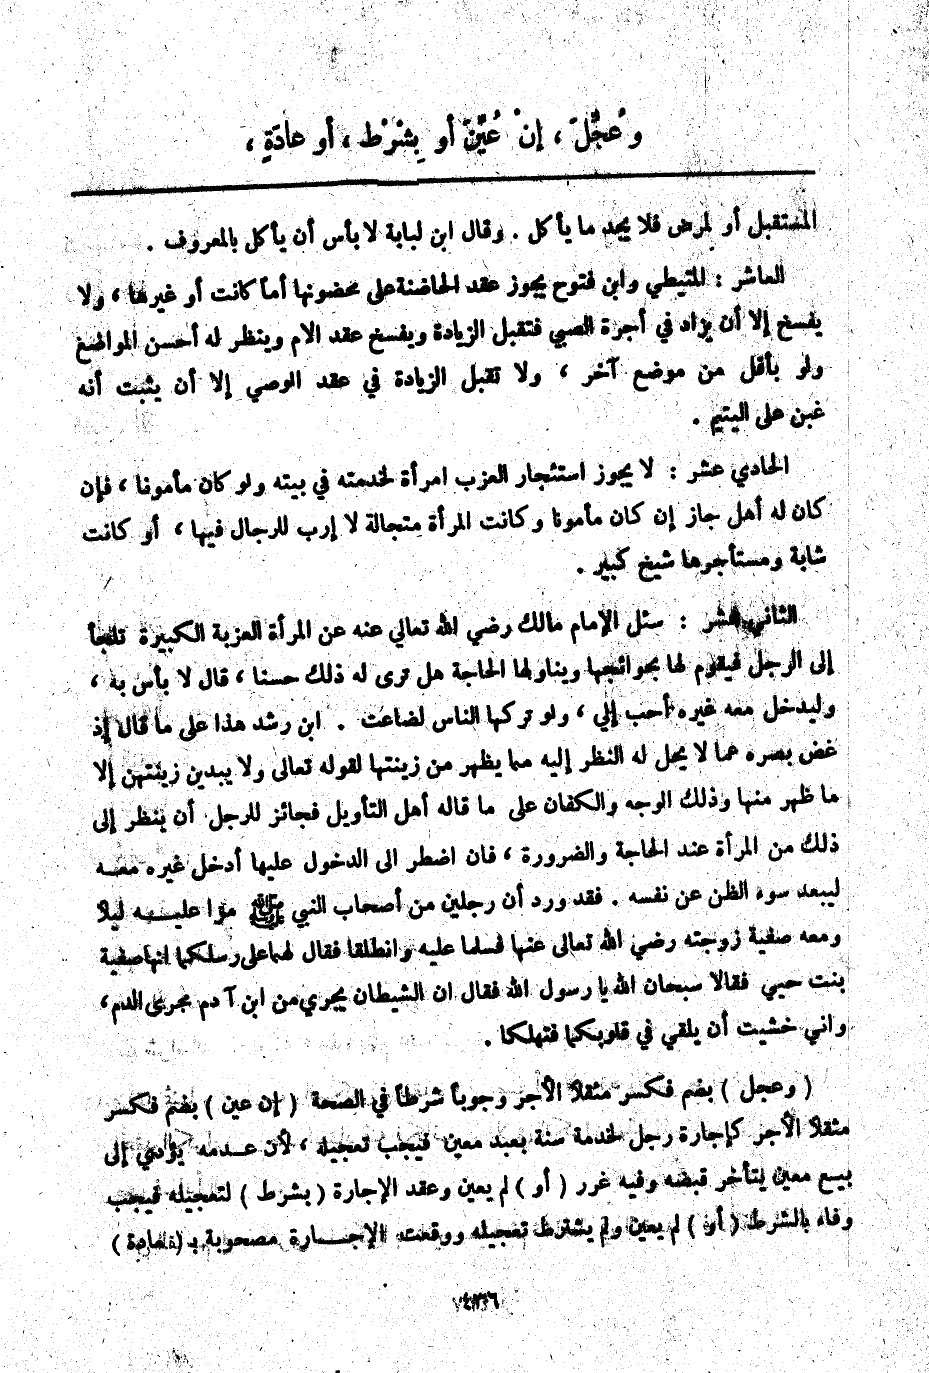 وَعُجِّلَ ، إنْ عُيِّنَ أو بِشَرْط ، أو عادَةٍ ،
المستقبل أو لمرض فلا يجد ما يأكل . وقال ابن لبابة لا بأس أن يأكل بالمعروف .
العاشر : المتيطي وابن فتوح يجوز عقد الحاضنة على محضونها أماً كانت أو غيرها ، ولا
يفسخ إلا أن يزاد في أجرة الصبي فتقبل الزيادة ويفسخ عقد الام وينظر له أحسن المواضع
ولو بأقل من موضع آخر ، ولا تقبل الزيادة في عقد الوصي إلا أن يثبت أنه
غبن على اليتيم .
الحادي عشر : لا يجوز استئجار العزب امرأة لخدمته في بيته ولو كان مأمونا ، فإن
كان له أهل جاز إن كان مأمونا وكانت المرأة متجالة لا إرب للرجال فيها ، أو كانت
شابة ومستأجرها شيخ كبير .
الثاني عشر : سئل الإمام مالك رضي الله تعالي عنه عن المرأة العزبة الكبيرة تلجأ
إلى الرجل فيقوم لها بحوائجها ويناولها الحاجة هل ترى له ذلك حسنا ، قال لا بأس به ،
وليدخل معه غيره أحب إلي ، ولو تركها الناس لضاعت . ابن رشد هذا على ما قال إذ
غض بصره عما لا يحل له النظر إليه مما يظهر من زينتها لقوله تعالى ولا يبدين زينتهن إلا
ما ظهر منها وذلك الوجه والكفان على ما قاله أهل التأويل فجائز للرجل أن ينظر إلى
ذلك من المرأة عند الحاجة والضرورة ، فان اضطر الى الدخول عليها أدخل غيره معه
ليبعد سوء الظن عن نفسه . فقد ورد أن رجلين من أصحاب النبي ﷺ مرا عليه ليلا
ومعه صفية زوجته رضي الله تعالى عنها فسلما عليه وانطلقا فقال لهما على رسلكما انها صفية
بنت حيي فقالا سبحان الله يا رسول الله فقال ان الشيطان يجري من ابن آدم مجرى الدم ،
واني خشيت أن يلقي في قلوبكما فتهلكا .
( وعجل ) بضم فكسر مثقلا الأجر وجوباً شرطاً في الصحة ( إن عين ) بضم فكسر
مثقلا الأجر كإجارة رجل لخدمة سنة بعبد معين فيجب تعجيله ، لأن عدمه يؤدي إلى
بيع معين يتأخر قبضه وفيه غرر ( أو ) لم يعين وعقد الإجارة ( بشرط ) لتعجيله فيجب
وفاء بالشرط ( أو ) لم يعين ولم يشترط تعجيله ووقعت الإجارة مصحوبة بـ ( عادة )